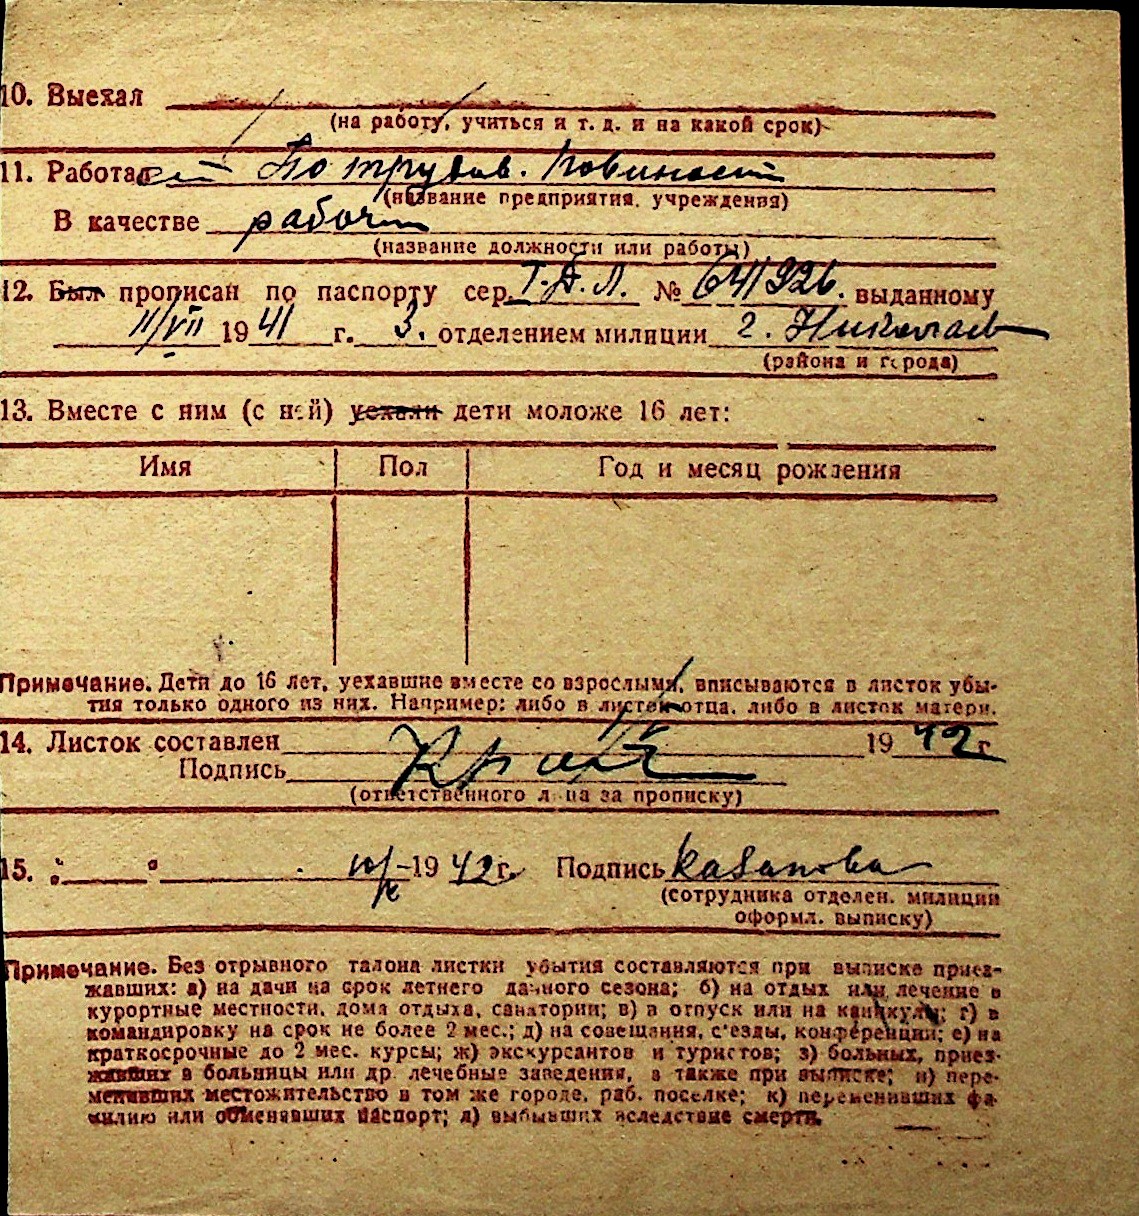 10. Выехал
(на работу, учиться и т. д. и на какой срок)
11. Работает По трудов. повиност
(название предприятия, учреждения)
В качестве рабоч
(название должности или работы)
12. Был прописан по паспорту сер. Т.Д.Л. № 641926. выданному
11/VII 1941 г. 3. отделением милиции г. Николаев
(района и города)
13. Вместе с ним (с ней) уехали дети моложе 16 лет:
Имя Пол Год и месяц рождения
Примечание. Дети до 16 лет, уехавшие вместе со взрослыми, вписываются в листок убы-
тия только одного из них. Например: либо в листок отца, либо в листок матери.
14. Листок составлен 1942 г
Подпись
(ответственного лица за прописку)
15. „ “ 10/X-1942 г. Подпись Казанова
(сотрудника отделен. милиции
оформл. выписку)
Примечание. Без отрывного талона листки убытия составляются при выписке приез-
жавших: а) на дачи на срок летнего дачного сезона; б) на отдых или лечение в
курортные местности, дома отдыха, санатории; в) в отпуск или на каникулы; г) в
командировку на срок не более 2 мес.; д) на совещания, с'езды, конференции; е) на
краткосрочные до 2 мес. курсы; ж) экскурсантов и туристов; з) больных, приез-
жавших в больницы или др. лечебные заведения, а также при выписке; и) пере-
менивших местожительство в том же городе, раб. поселке; к) переменивших фа-
милию или обменявших паспорт; л) выбывших вследствие смерти.